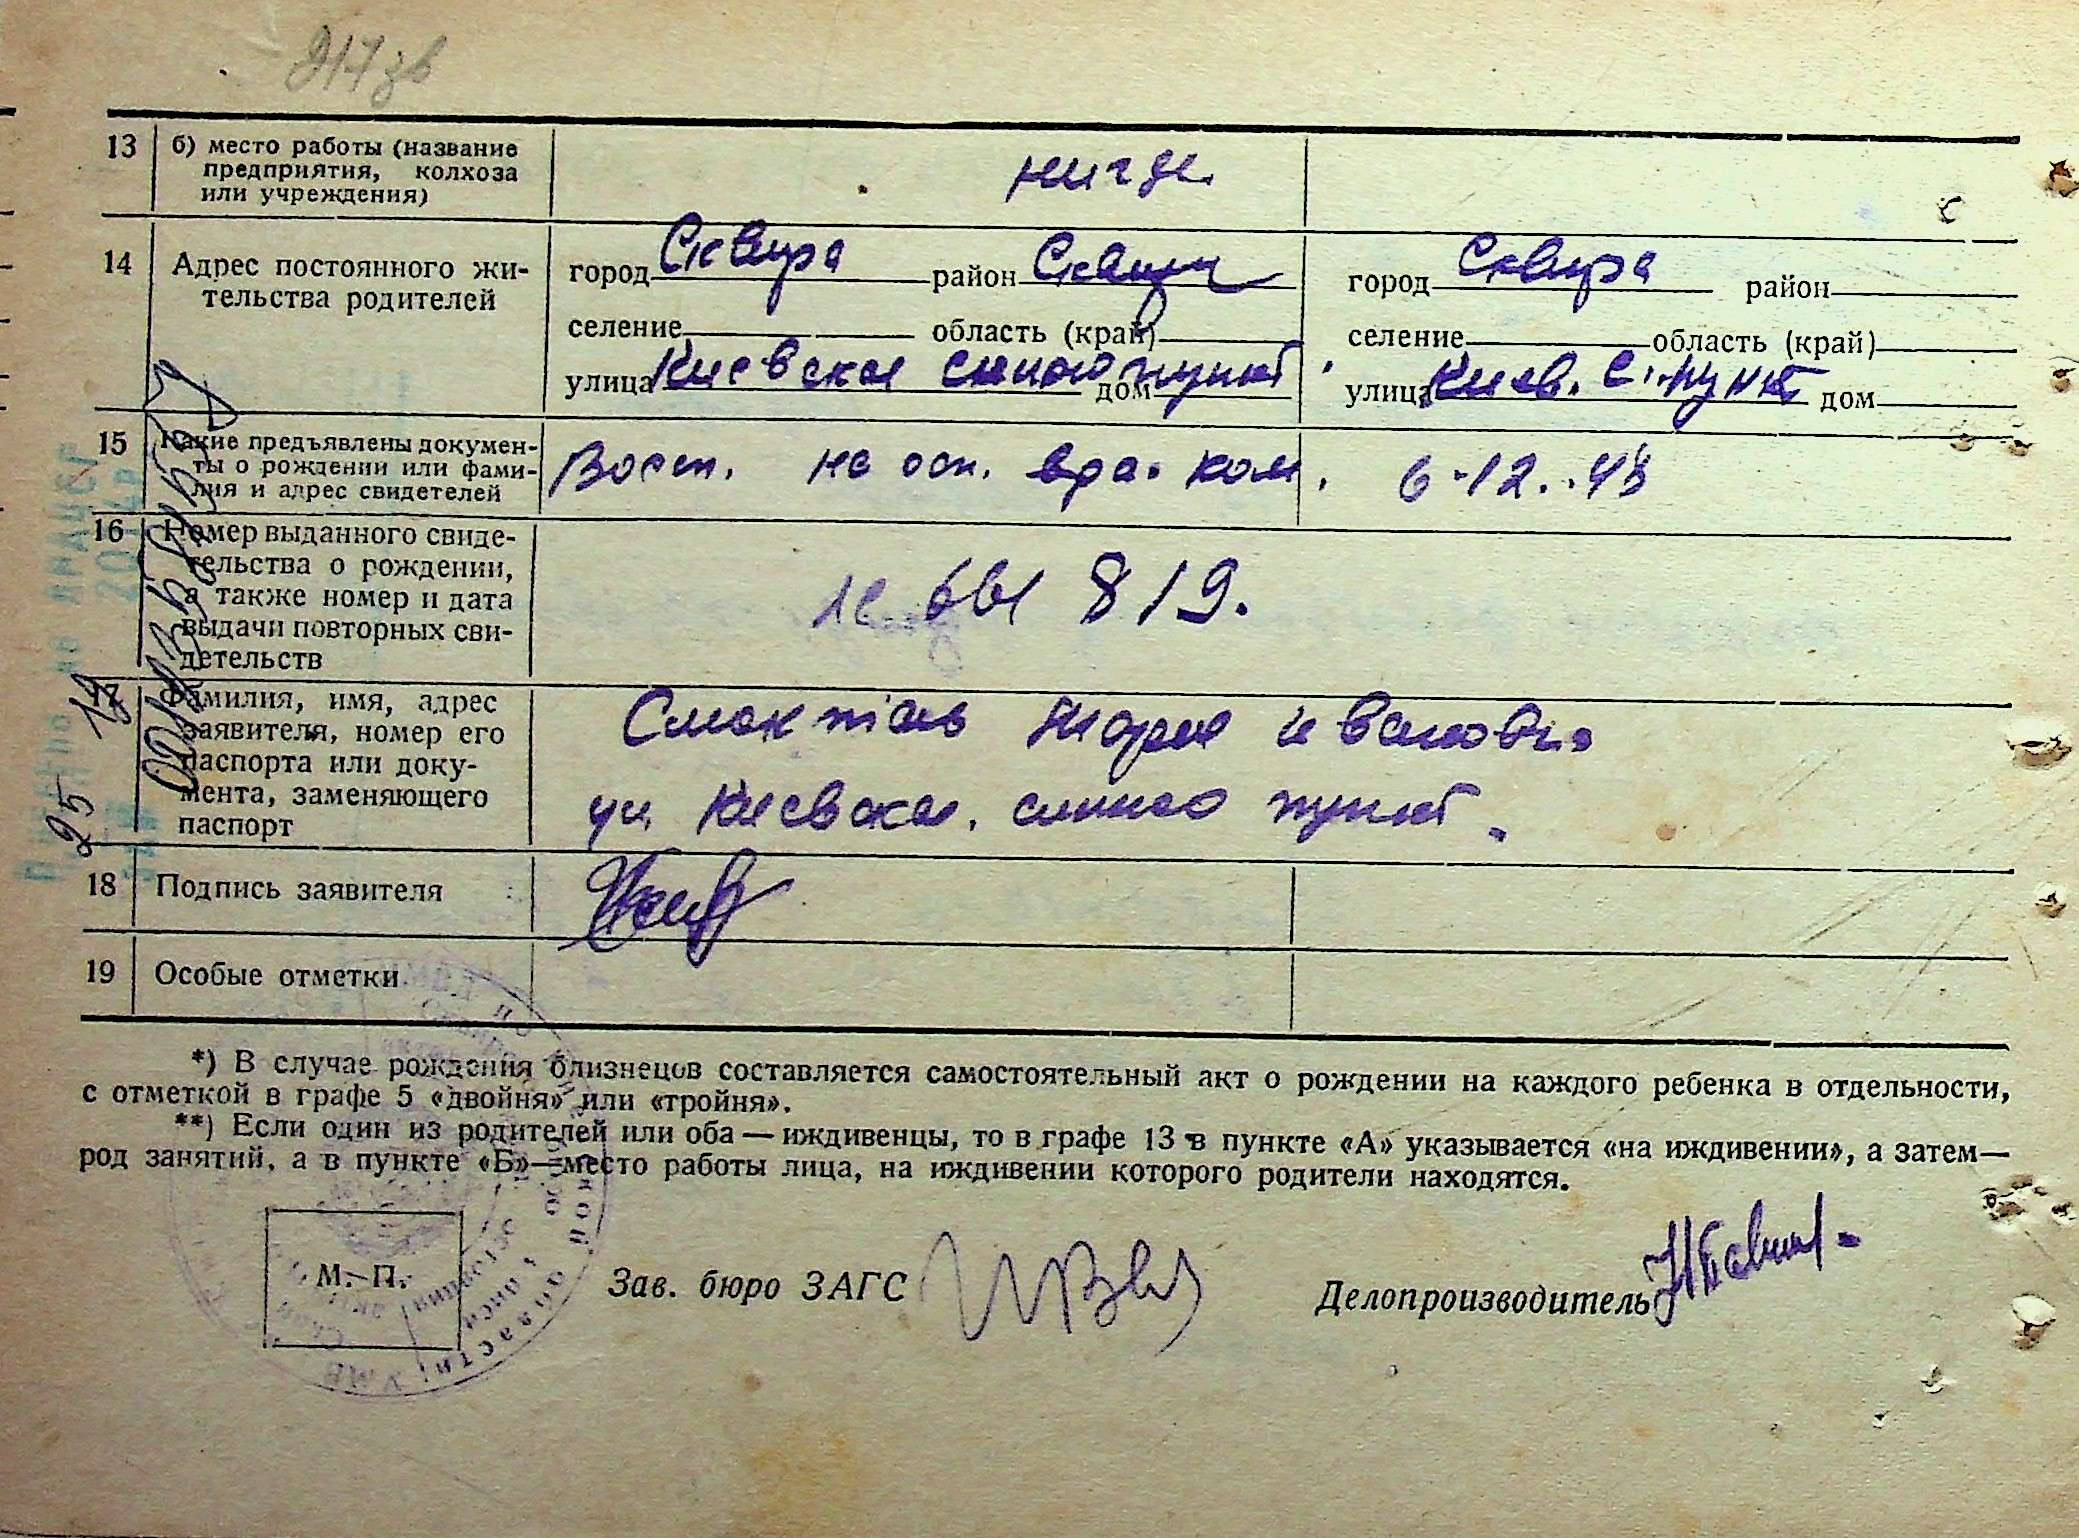 217 зв
13
б) место работы (название
предприятия, колхоза
или учреждения)
нигде
14
Адрес постоянного жи-
тельства родителей
город Сквира район Сквир
селение область (край)
улица Киевская синою пункт дом
город Сквира район
селение область (край)
улица Киев. С. пункт дом
15
Какие предъявлены докумен-
ты о рождении или фами-
лия и адрес свидетелей
Восст. на осн. вра. ком. 6.12.48
16
Номер выданного свиде-
тельства о рождении,
а также номер и дата
выдачи повторных сви-
детельств
819.
17
Фамилия, имя, адрес
заявителя, номер его
паспорта или доку-
мента, заменяющего
паспорт
Мария Ивановна
ул Киевская. пункт.
18
Подпись заявителя
19
Особые отметки
*) В случае рождения близнецов составляется самостоятельный акт о рождении на каждого ребенка в отдельности,
с отметкой в графе 5 «двойня» или «тройня».
**) Если один из родителей или оба — иждивенцы, то в графе 13 в пункте «А» указывается «на иждивении», а затем—
род занятий, а в пункте «Б»—место работы лица, на иждивении которого родители находятся.
М. П.
Зав. бюро ЗАГС
Делопроизводитель